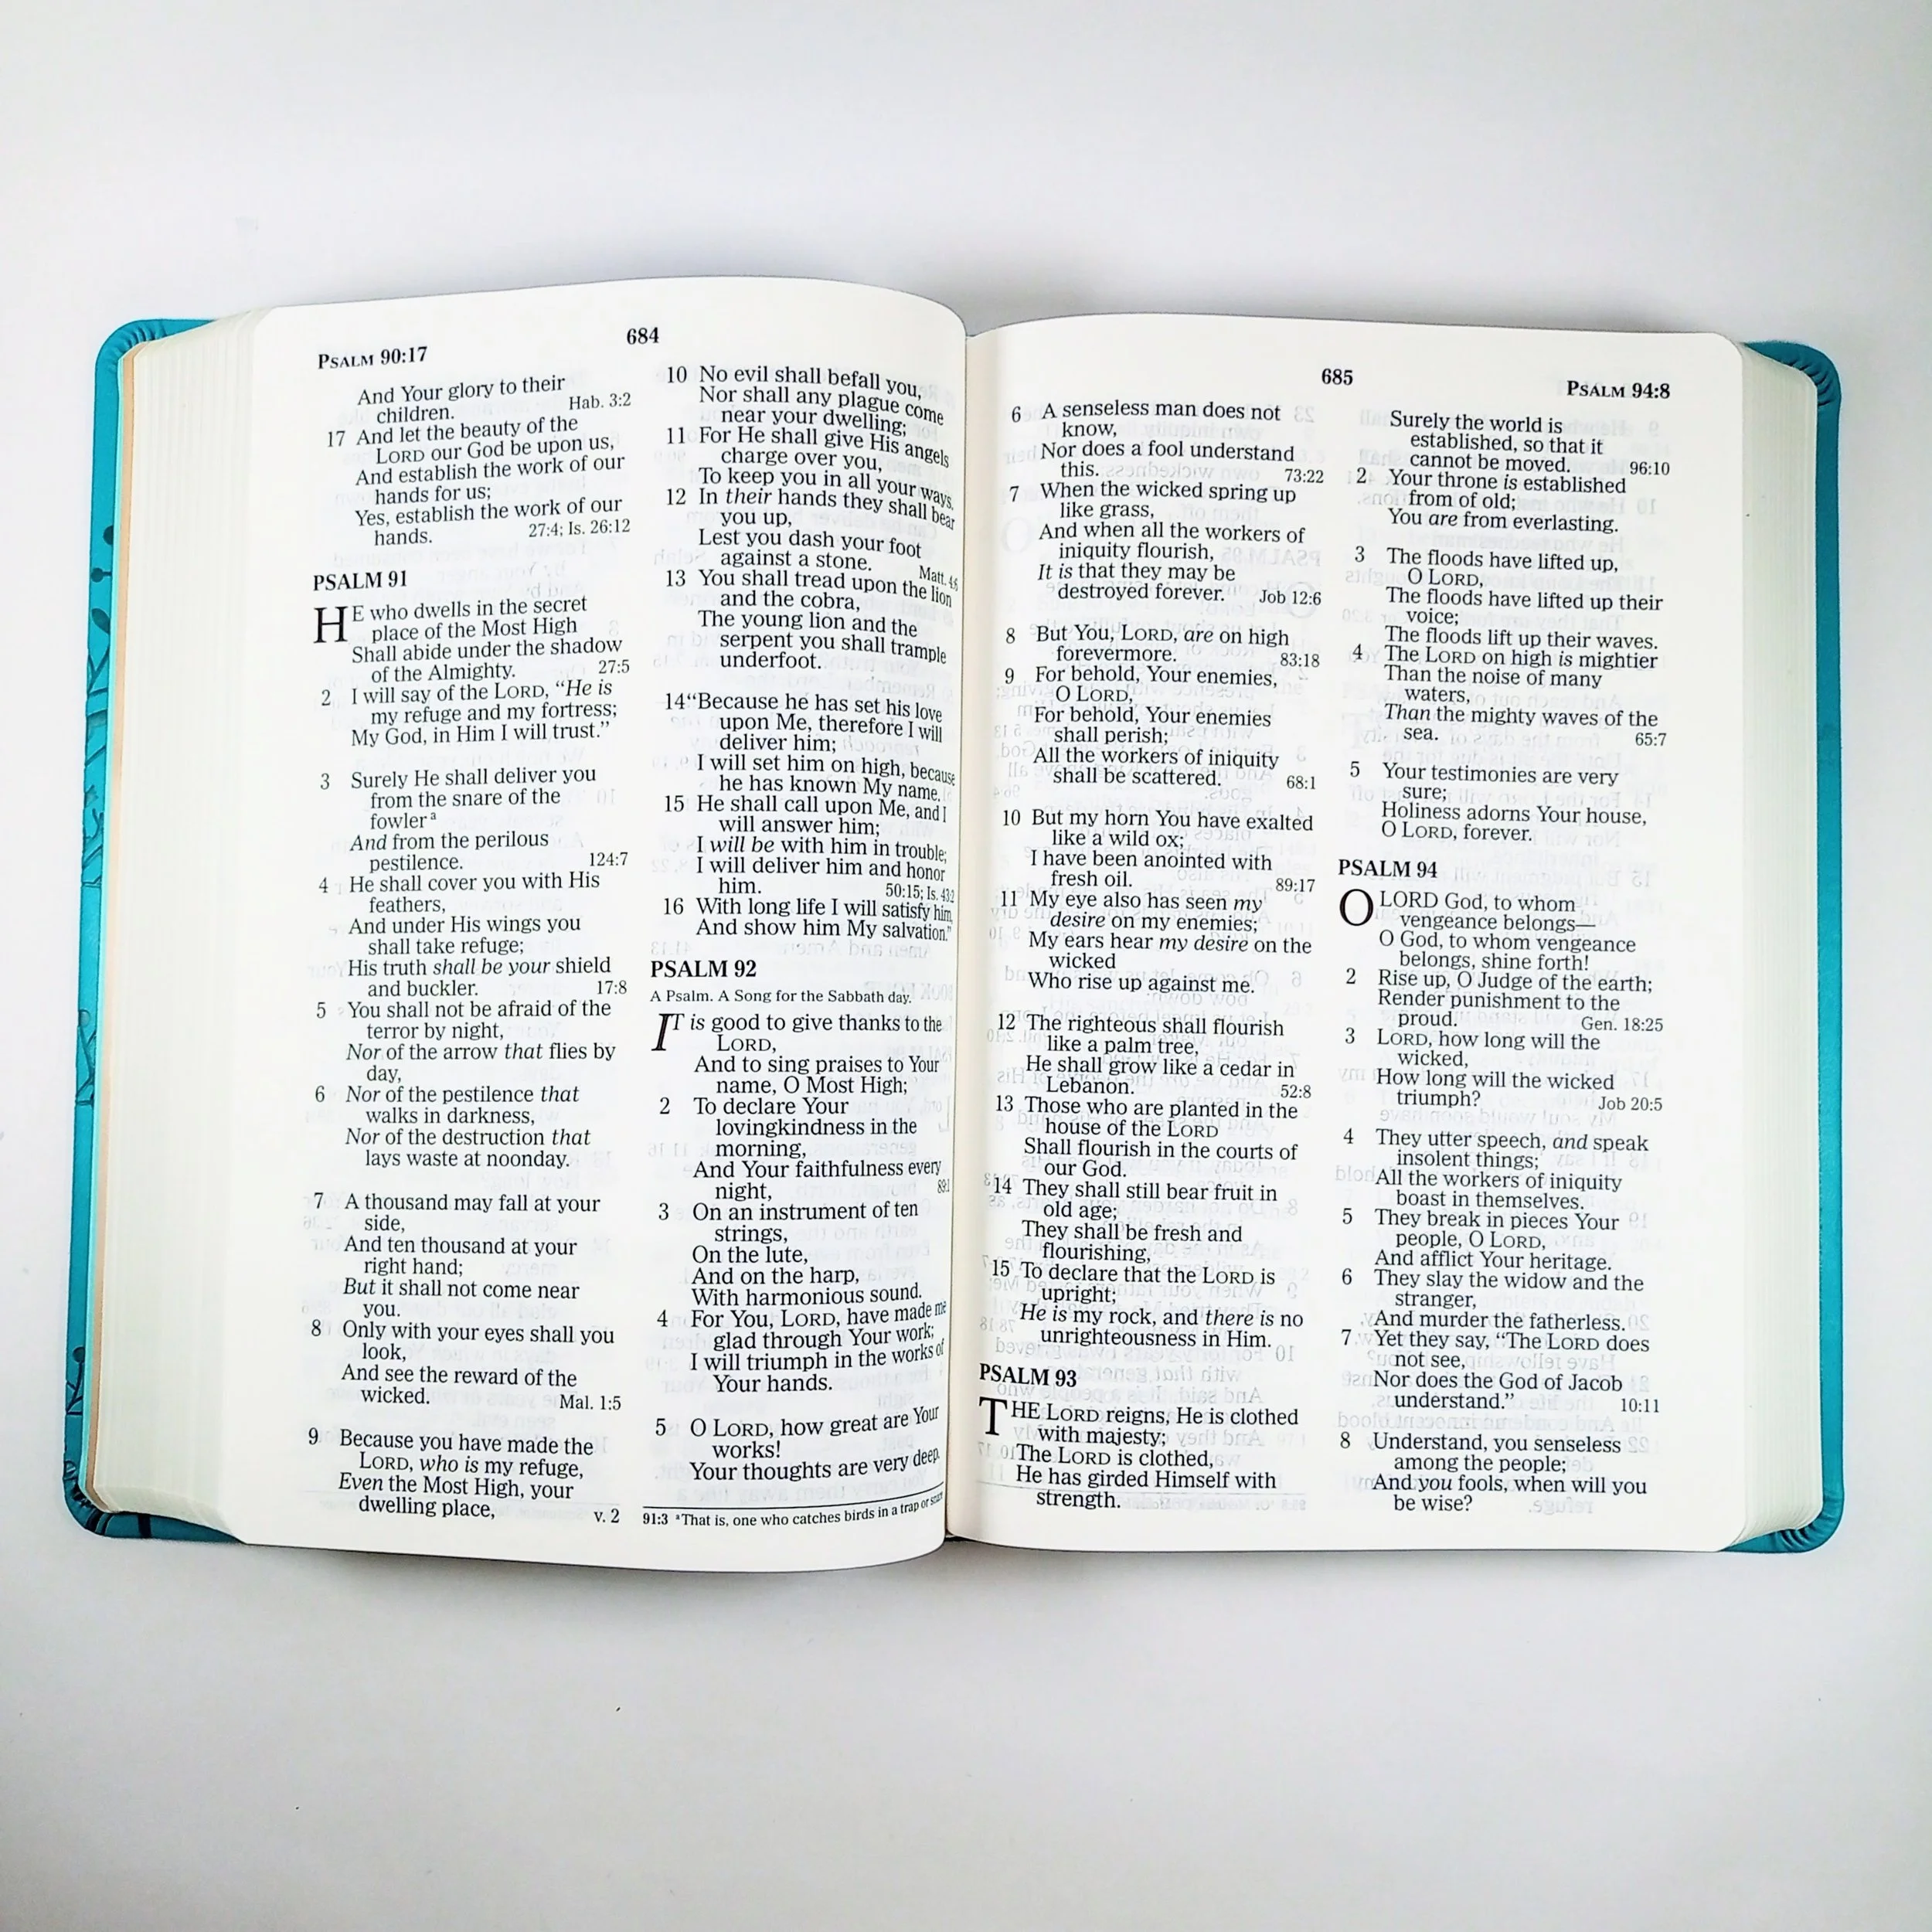 PSALM 90:17
684
And Your glory to their
children. Hab. 3:2
17 And let the beauty of the
LORD our God be upon us,
And establish the work of our
hands for us;
Yes, establish the work of our
hands. 27:4; Is. 26:12
PSALM 91
HE who dwells in the secret
place of the Most High
Shall abide under the shadow
of the Almighty. 27:5
2 I will say of the LORD, “He is
my refuge and my fortress;
My God, in Him I will trust.”
3 Surely He shall deliver you
from the snare of the
fowler a
And from the perilous
pestilence. 124:7
4 He shall cover you with His
feathers,
And under His wings you
shall take refuge;
His truth shall be your shield
and buckler. 17:8
5 You shall not be afraid of the
terror by night,
Nor of the arrow that flies by
day,
6 Nor of the pestilence that
walks in darkness,
Nor of the destruction that
lays waste at noonday.
7 A thousand may fall at your
side,
And ten thousand at your
right hand;
But it shall not come near
you.
8 Only with your eyes shall you
look,
And see the reward of the
wicked. Mal. 1:5
9 Because you have made the
LORD, who is my refuge,
Even the Most High, your
dwelling place, v. 2
10 No evil shall befall you,
Nor shall any plague come
near your dwelling;
11 For He shall give His angels
charge over you,
To keep you in all your ways.
12 In their hands they shall bear
you up,
Lest you dash your foot
against a stone. Matt. 4:6
13 You shall tread upon the lion
and the cobra,
The young lion and the
serpent you shall trample
underfoot.
14 “Because he has set his love
upon Me, therefore I will
deliver him;
I will set him on high, because
he has known My name.
15 He shall call upon Me, and I
will answer him;
I will be with him in trouble;
I will deliver him and honor
him. 50:15; Is. 43:2
16 With long life I will satisfy him,
And show him My salvation.”
PSALM 92
A Psalm. A Song for the Sabbath day.
IT is good to give thanks to the
LORD,
And to sing praises to Your
name, O Most High;
2 To declare Your
lovingkindness in the
morning,
And Your faithfulness every
night, 89:1
3 On an instrument of ten
strings,
On the lute,
And on the harp,
With harmonious sound.
4 For You, LORD, have made me
glad through Your work;
I will triumph in the works of
Your hands.
5 O LORD, how great are Your
works!
Your thoughts are very deep.
91:3 a That is, one who catches birds in a trap or snare
685
PSALM 94:8
6 A senseless man does not
know,
Nor does a fool understand
this. 73:22
7 When the wicked spring up
like grass,
And when all the workers of
iniquity flourish,
It is that they may be
destroyed forever. Job 12:6
8 But You, LORD, are on high
forevermore. 83:18
9 For behold, Your enemies,
O LORD,
For behold, Your enemies
shall perish;
All the workers of iniquity
shall be scattered. 68:1
10 But my horn You have exalted
like a wild ox;
I have been anointed with
fresh oil. 89:17
11 My eye also has seen my
desire on my enemies;
My ears hear my desire on the
wicked
Who rise up against me.
12 The righteous shall flourish
like a palm tree,
He shall grow like a cedar in
Lebanon. 52:8
13 Those who are planted in the
house of the LORD
Shall flourish in the courts of
our God.
14 They shall still bear fruit in
old age;
They shall be fresh and
flourishing,
15 To declare that the LORD is
upright;
He is my rock, and there is no
unrighteousness in Him.
PSALM 93
THE LORD reigns, He is clothed
with majesty;
The LORD is clothed,
He has girded Himself with
strength.
Surely the world is
established, so that it
cannot be moved. 96:10
2 Your throne is established
from of old;
You are from everlasting.
3 The floods have lifted up,
O LORD,
The floods have lifted up their
voice;
The floods lift up their waves.
4 The LORD on high is mightier
Than the noise of many
waters,
Than the mighty waves of the
sea. 65:7
5 Your testimonies are very
sure;
Holiness adorns Your house,
O LORD, forever.
PSALM 94
O LORD God, to whom
vengeance belongs—
O God, to whom vengeance
belongs, shine forth!
2 Rise up, O Judge of the earth;
Render punishment to the
proud. Gen. 18:25
3 LORD, how long will the
wicked,
How long will the wicked
triumph? Job 20:5
4 They utter speech, and speak
insolent things;
All the workers of iniquity
boast in themselves.
5 They break in pieces Your
people, O LORD,
And afflict Your heritage.
6 They slay the widow and the
stranger,
And murder the fatherless.
7 Yet they say, “The LORD does
not see,
Nor does the God of Jacob
understand.” 10:11
8 Understand, you senseless
among the people;
And you fools, when will you
be wise?